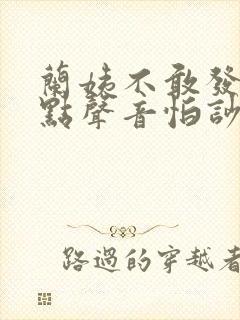 蘭姨不敢發
點聲音怕訬
路過的穿越者